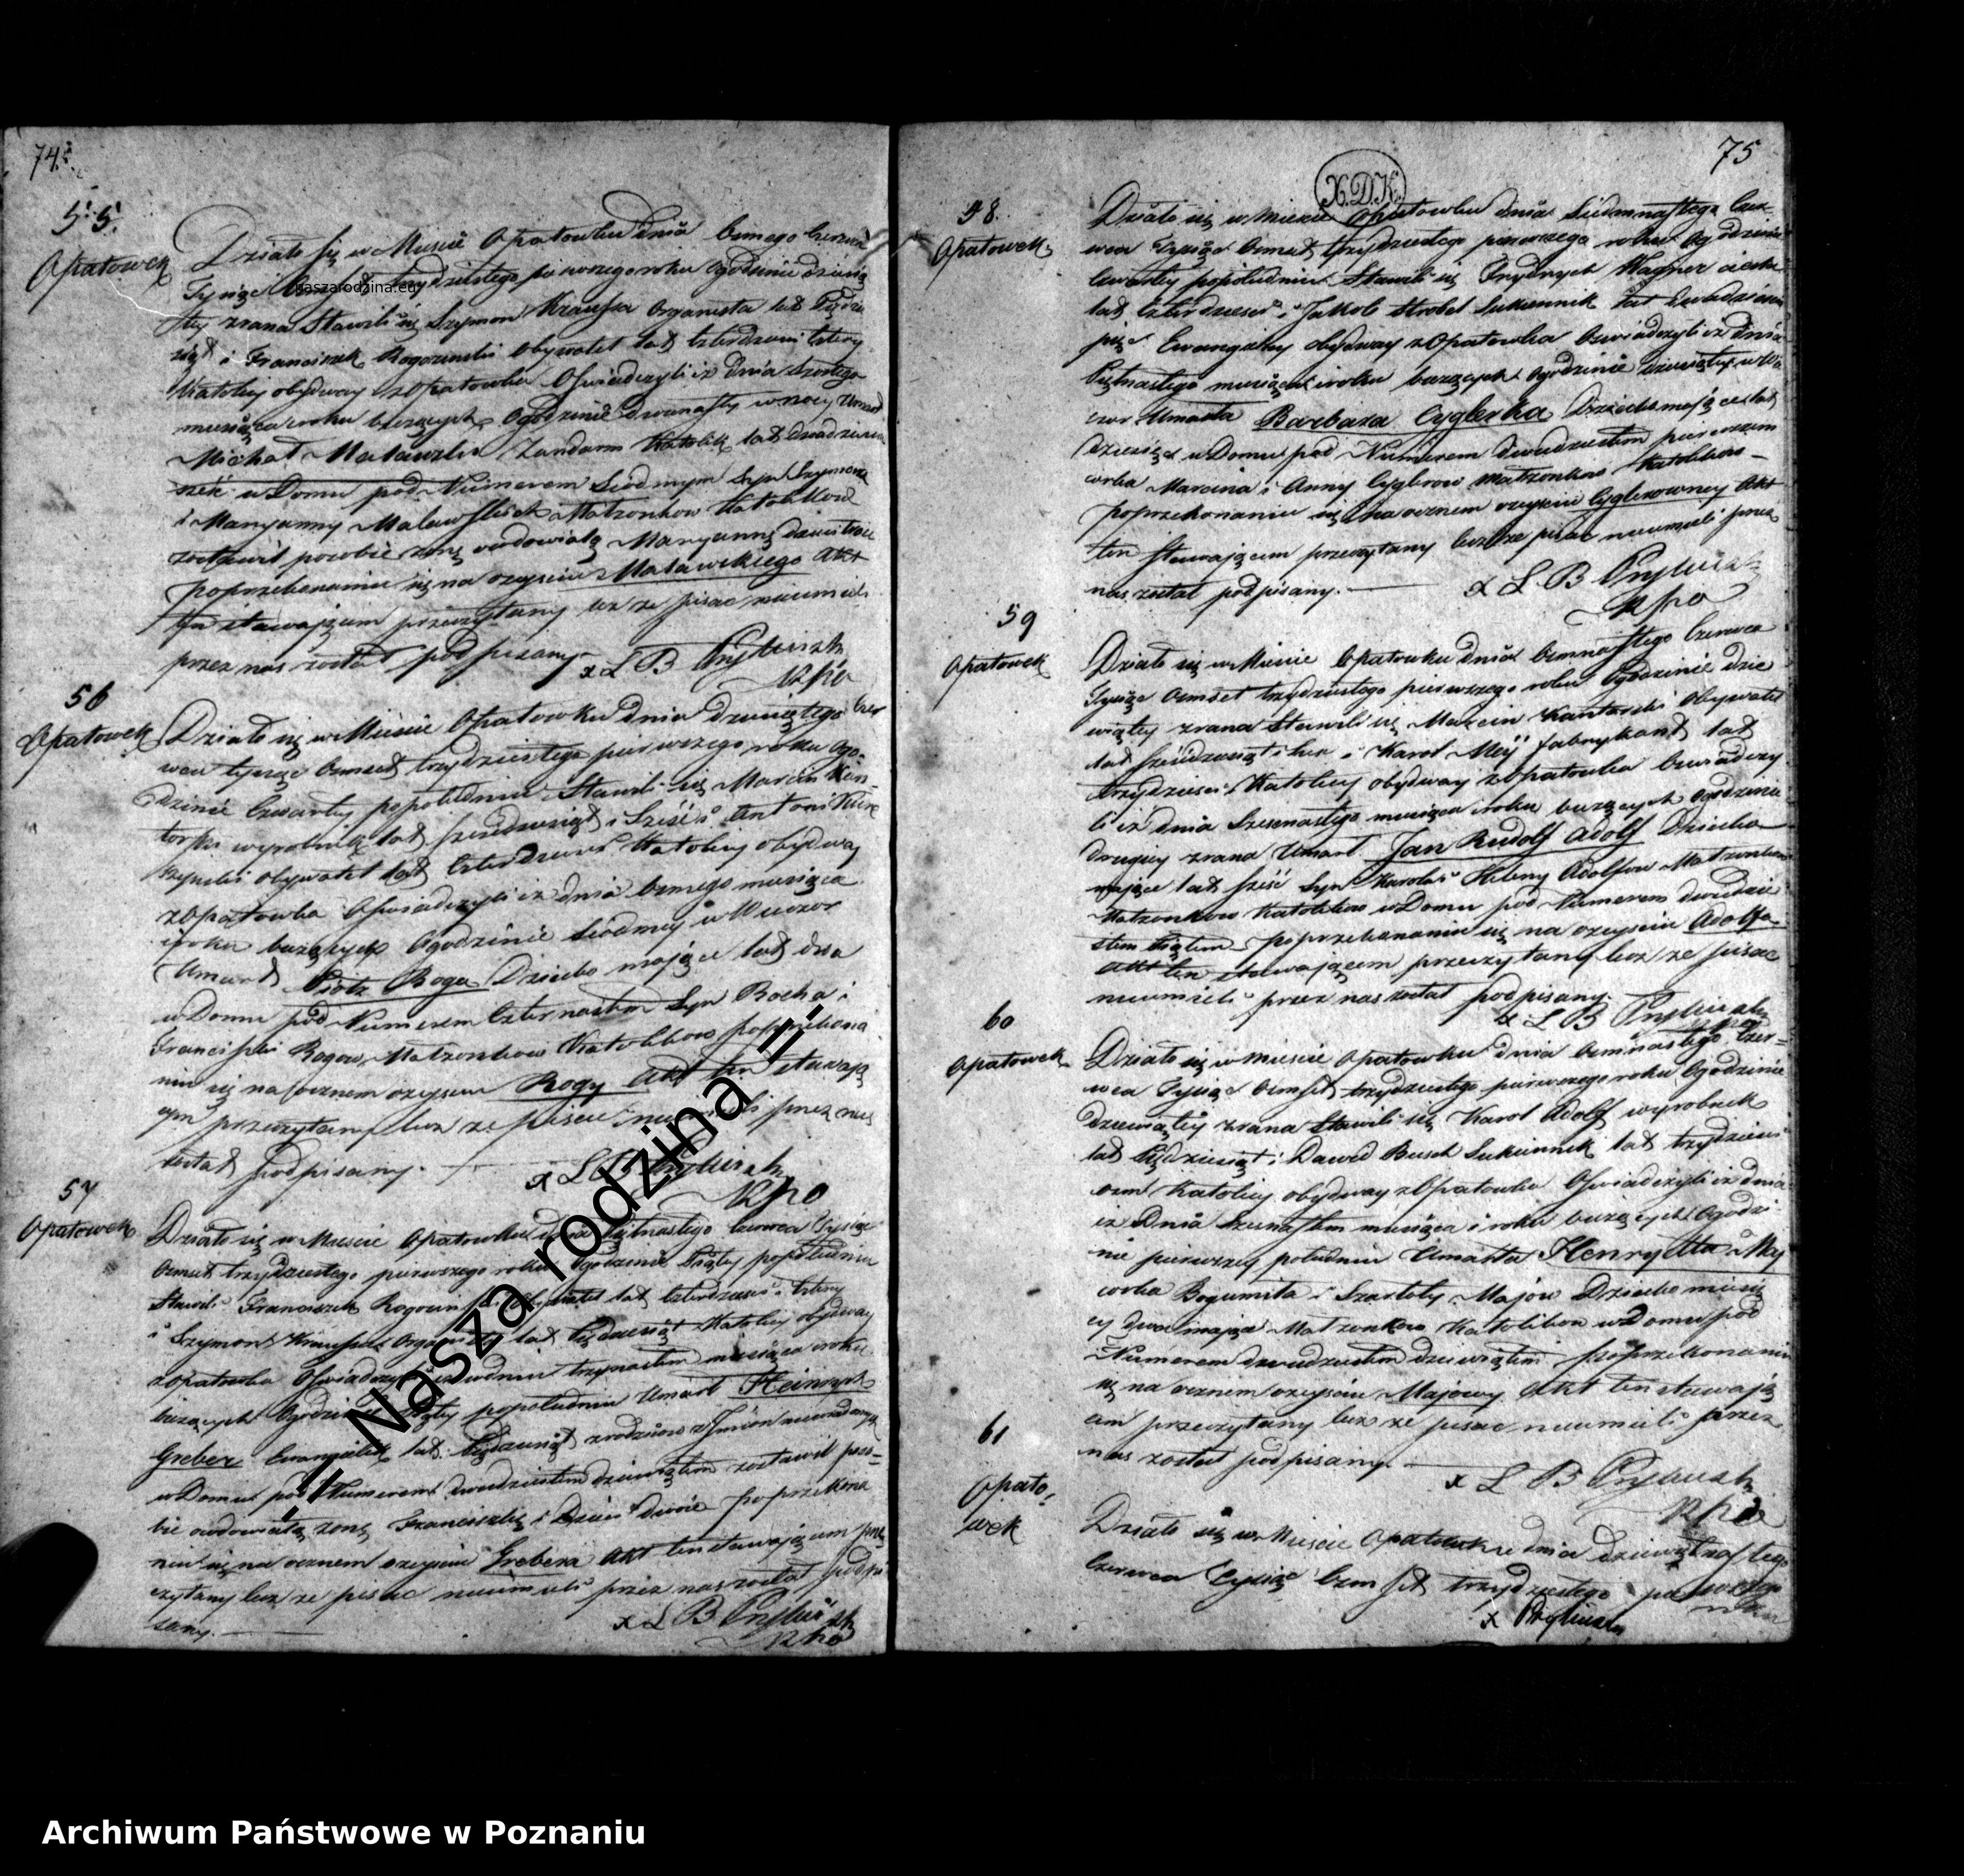 74
55.
Opatowek
Działo się w Mieście Opatowku dnia Osmego Czerwca
Tysiąc Osmset trzydziestego pierwszego roku Ogodzinie dziewią
tey zrana Stawili się Szymon Kraussa Organista lat Pięćdzie
siąt i Franciszek Rogozinski Obywatel lat czterdzieści cztery
Katolicy obydway z Opatowka Oświadczyli iż dnia szostego
miesiąca i roku bieżących Ogodzinie dwunasty w nocy Umarł
Michał Małazski Żandarm Katolik lat dwadzieścia
sześć w Domu pod Numerem Siódmym Syn Szymona
i Maryanny Małowskich Małżonkow Katolikow
zostawił posobie żonę owdowiałą Maryannę
poprzekonaniu się na oczyscie Małowskiego Akt
ten stawającym przeczytany lecz że pisac nieumieli
przez nas został podpisany
x L B Przybniak
56
Opatowek
Działo się w Mieście Opatowku dnia dziewiątego Czer
wca tysiąc Osmset trzydziestego pierwszego roku Ogo
dzinie Czwarty popołudniu Stawili się Marcin Kan
torski wyrobnik lat sześćdziesiąt i Sześć i Antoni
obywatel lat Czterdzieści Katolicy obydway
z Opatowka Oświadczyli iż dnia Osmego miesiąca
i roku bieżących Ogodzinie Siódmey w Wieczor
Umarł Piotr Roga Dziecko mające lat dwa
w Domu pod Numerem Czternastem Syn Rocha i
Franciszki Rogow Małżonkow Katolikow poprzekona
niu się na ocznem oczyscie Rogy Akt ten stawają
cym przeczytany lecz że pisac przez nas
został podpisany
57
Opatowek
Działo się w Mieście Opatowku dnia Piętnastego Czerwca Tysiąc
Osmset trzydziestego pierwszego roku Ogodzinie Piąty popołudniu
Stawili Franciszek Rogozinski Obywatel lat czterdzieści i cztery
i Szymon Kraussa Organista lat Pięćdziesiąt Katolicy obydway
z Opatowka Oświadczyli trzynastem miesiąca i roku
bieżących Ogodzinie popołudniu Umarł Heinrych
Greber Ewangelik lat Pięćdziesiąt z rodziców z Imion niewiadomych
w Domu pod Numerem dwudziestem dziewiątem zostawił poso
bie owdowiałą żonę Franciszkę i Dzieci dwoie poprzekona
niu się na ocznem oczyscie Grebera Akt ten stawającym prze
czytany lecz że pisac nieumieli przez nas został podpi
sany.
x L B Przybniak
75
X.D.K.
58.
Opatowek
Działo się w Miescie Opatowku dnia Siedmnastego Czer
wca Tysiąc Osmset trzydziestego pierwszego roku Ogodzinie
Czwarty popołudniu Stawili się Frydrych Wagner ciesla
lat Czterdziesci i Jakob Strobel Sukiennik lat dwadziescia
pięć Ewangelicy obydway z Opatowka Oswiadczyli iż dnia
Piętnastego miesiąca i roku bieżących Ogodzinie dziewiąty w Wie
czor Umarła Barbara Cyglerka Dziecko mające lat
Dziesięć w Domu pod Numerem dwudziestem pierwszem
corka Marcina i Anny Cyglerow Małżonkow Katolikow
poprzekonaniu się na ocznem oczyscie Cyglerowney Akt
ten stawającem przeczytany lecz że pisac nieumieli przez
nas został podpisany.
x L B Przybniak
59
Opatowek
Działo się w Miescie Opatowku dnia Osmnastego Czerwca
Tysiąc Osmset trzydziestego pierwszego roku Ogodzinie dzie
wiątey zrana Stawili się Marcin Kantorski Obywatel
lat sześćdziesiąt i Karol Mey fabrykant lat
trzydziesci Katolicy obydway z Opatowka Oswiadczy
li iż dnia Szesnastego miesiąca i roku bieżących Ogodzinie
drugiey zrana Umarł Jan Rudolf Adolf Dziecko
mające lat sześć Syn Karola i Heleny Adolfow Małżonkow
Małżonkow Katolikow w Domu pod Numerem dwudzie
stem Piątem poprzekonaniu się na oczyscie Adolfa
Akt ten stawającem przeczytany lecz że pisac
nieumieli przez nas został podpisany.
x L B Przybniak
60
Opatowek
Działo się w Miescie Opatowku dnia Osmnastego Czer
wca Tysiąc Osmset trzydziestego pierwszego roku Ogodzinie
Dziewiątey zrana Stawili się Karol Adolf wyrobnik
lat Pięćdziesiąt i Dawid Busch Sukiennik lat trzydziesci
osm Katolicy obydway z Opatowka Oświadczyli iż dnia
iż Dnia Szesnastem miesiąca i roku bieżących Ogodzi
nie pierwszey południu Umarła Henrytta May
corka Bogumiła i Szarloty Majow Dziecko miesię
cy dwa mająca Małżonkow Katolikow w Domu pod
Numerem dwudziestem dziewiątem poprzekonaniu
się na ocznem oczyscie Majowy Akt ten stawają
cem przeczytany lecz że pisac nieumieli przez
nas został podpisany.
x L B Przybniak
61
Opato
wek
Działo się w Miescie Opatowku dnia dziewiętnastego
Czerwca Tysiąc Osmset trzydziestego pierwszego
roku
x Przybniak
naszarodzina.eu
-"Nasza rodzina II"-
Archiwum Państwowe w Poznaniu